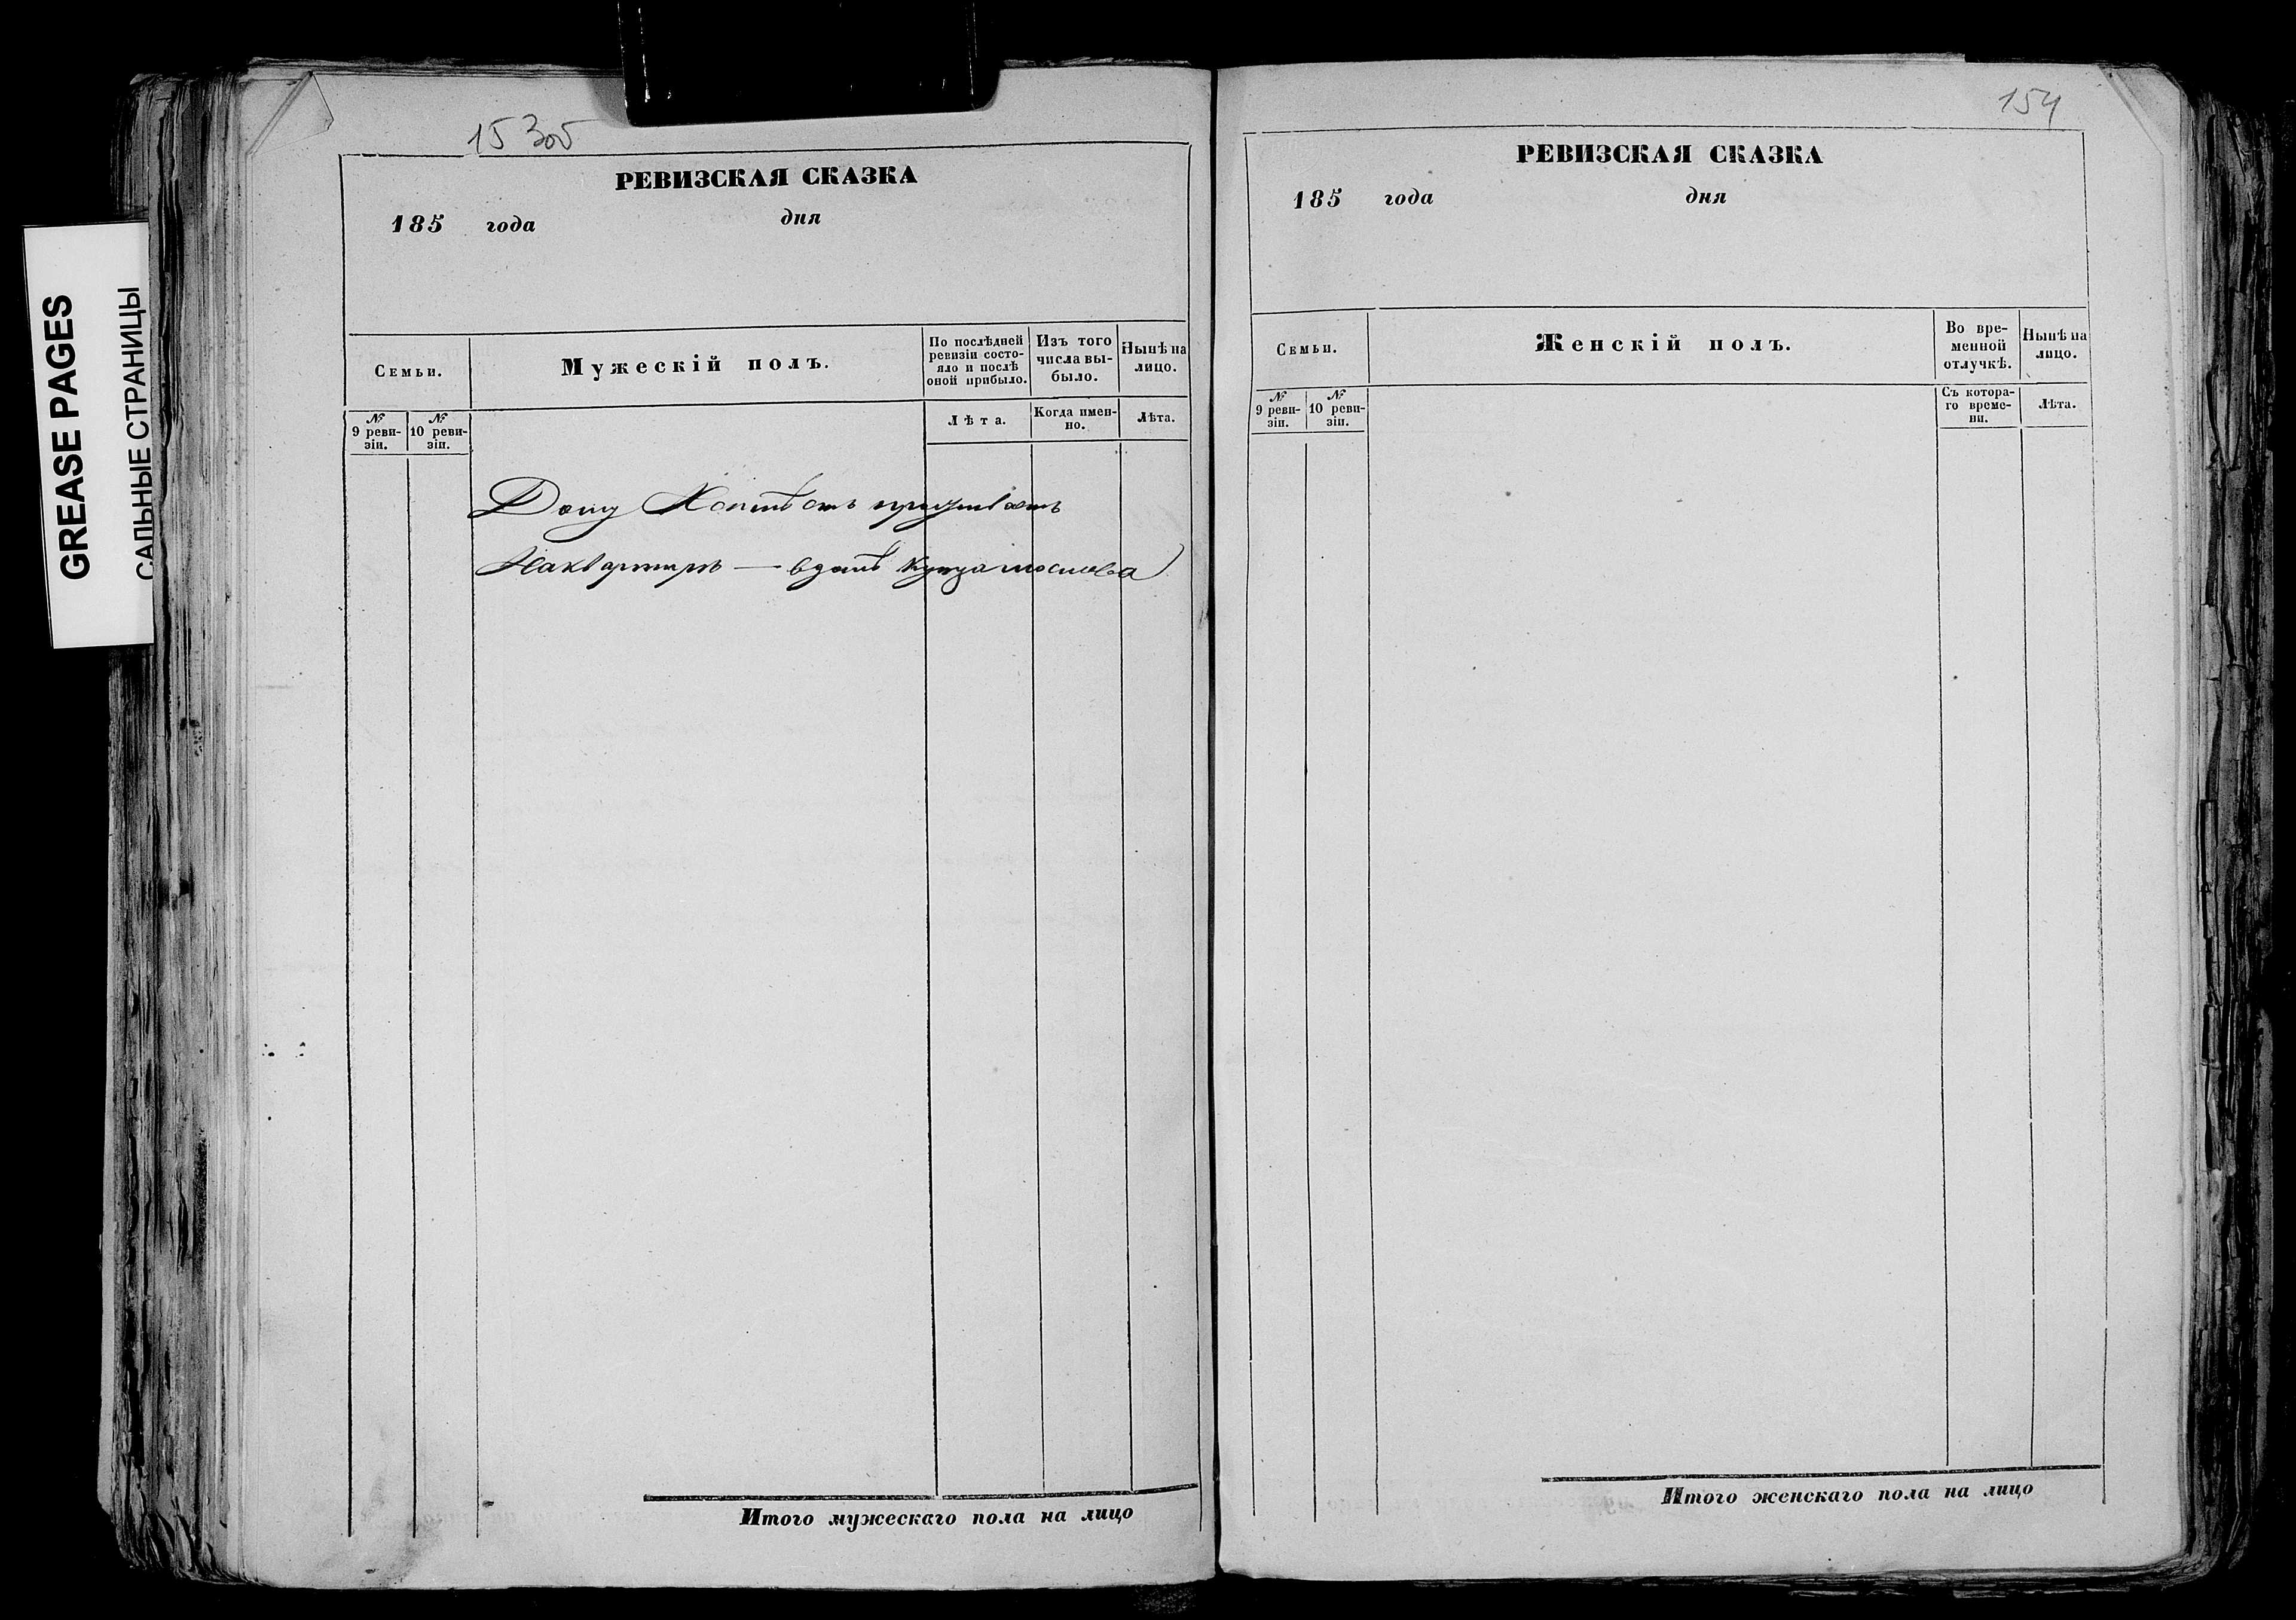 GREASE PAGES
САЛЬНЫЕ СТРАНИЦЫ
153об
РЕВИЗСКАЯ СКАЗКА
185 года дня
Семьи.
Мужескій полъ.
По послѣдней ревизіи состояло и послѣ оной прибыло.
Изъ того числа выбыло.
Нынѣ на лицо.
№ 9 ревизіи.
№ 10 ревизіи.
Лѣта.
Когда именно.
Лѣта.
Дому
Наквартирѣ — вдомѣ купца
Итого мужескаго пола на лицо
154
РЕВИЗСКАЯ СКАЗКА
185 года дня
Семьи.
Женскій полъ.
Во временной отлучкѣ.
Нынѣ на лицо.
№ 9 ревизіи.
№ 10 ревизіи.
Съ котораго времени.
Лѣта.
Итого женскаго пола на лицо